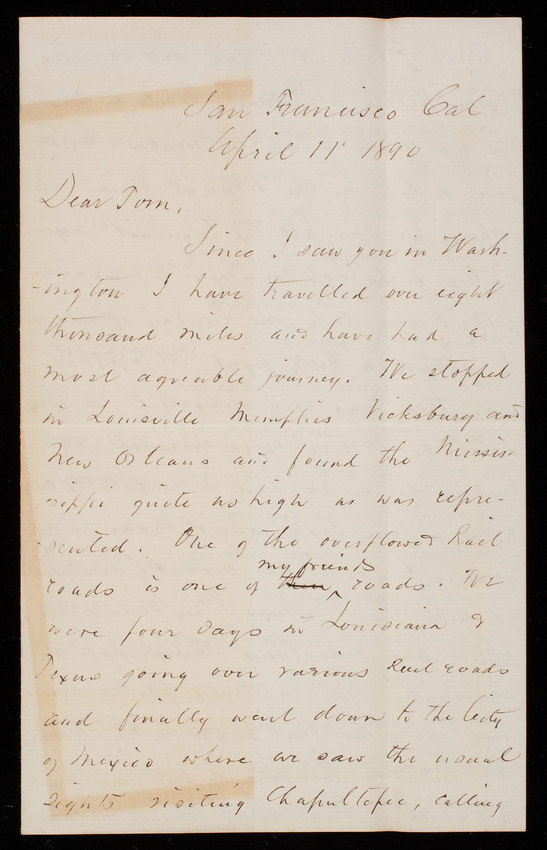 San Francisco Cal
April 11' 1890
Dear Tom,
Since I saw you in Wash-
-ington I have travelled over eight
thousand miles and have had a
most agreeable journey. We stopped
in Louisville Memphis Vicksburg and
New Orleans and found the Missis-
sippi quite as high as was repre-
sented. One of the overflowed Rail
my friends
roads is one of roads. We
were four days in Louisiana &
Texas going over various Rail roads
and finally went down to the City
of Mexico where we saw the usual
sights visiting Chapultepec, calling